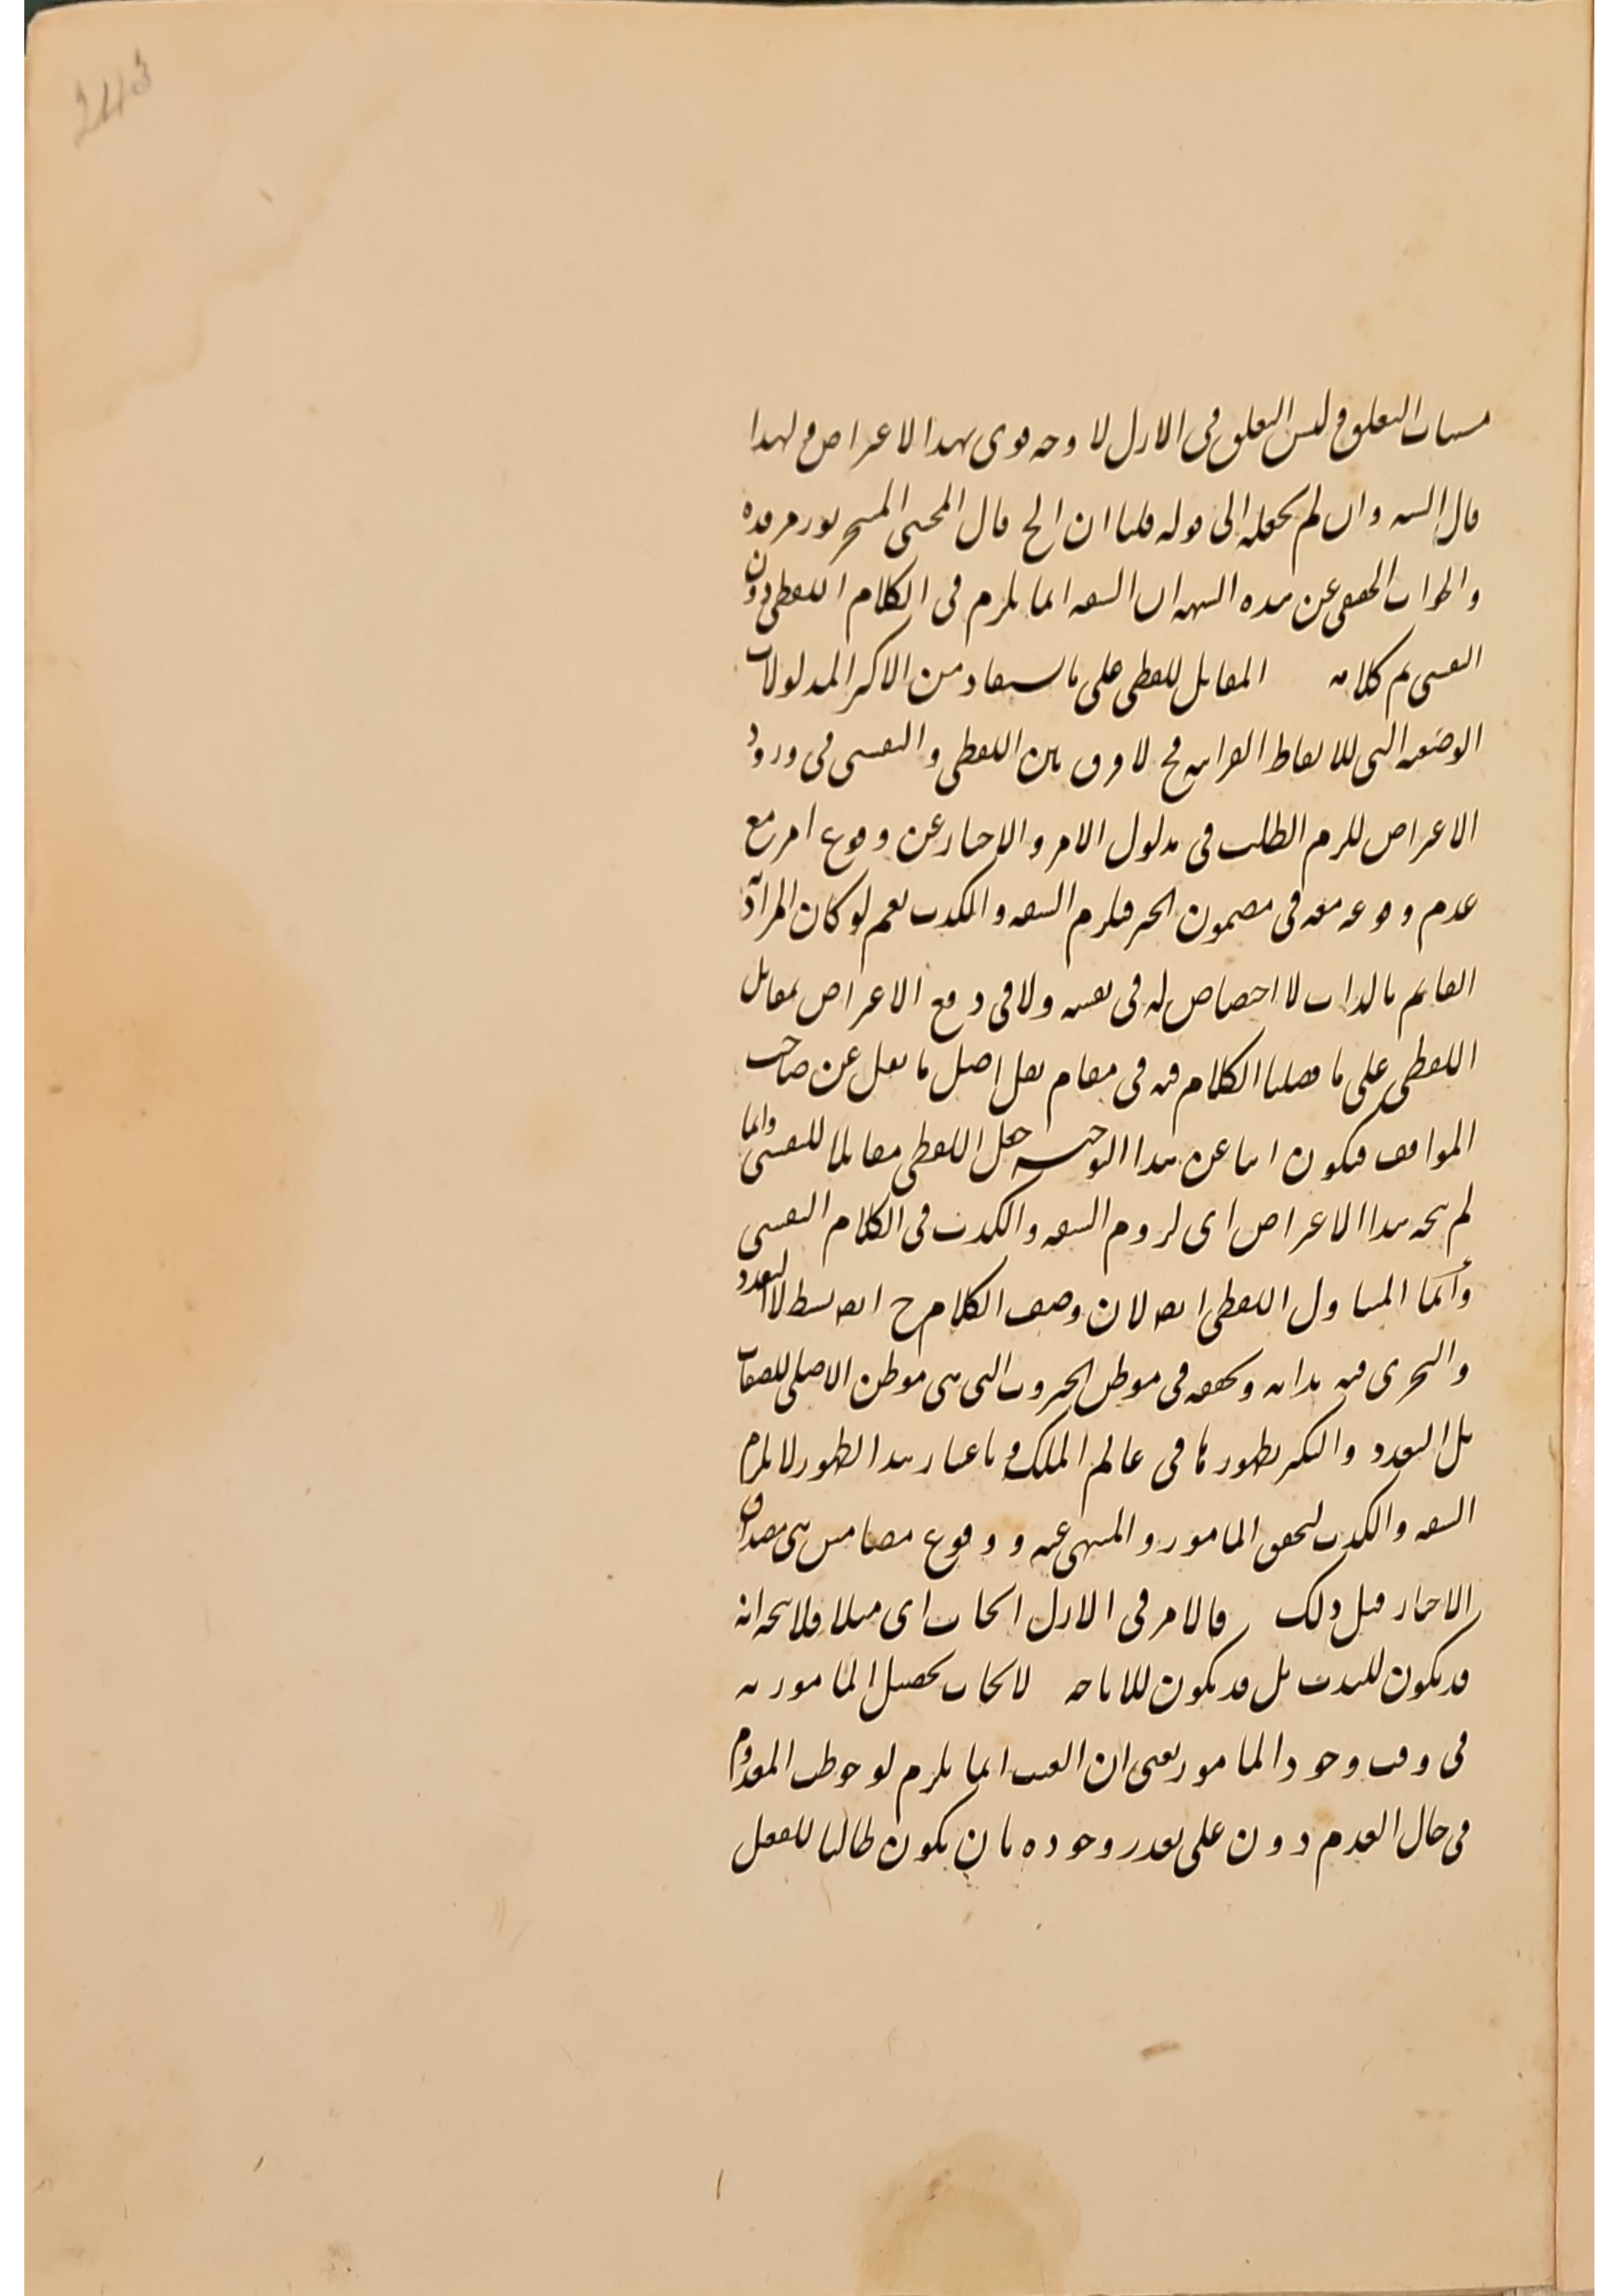 243
مسببات التعلق وليس التعلق فى الازل لا وجه قوى لهذا الاعتراض ولهذا
قال الشه وان لم يجعله الى قوله قلنا ان الخ قال المحشى المتبحر نور مرقده
والجواب الحقيقى عن هذه الشبهة ان السفه انما يلزم فى الكلام اللفظى دون
النفسى تم كلامه المقابل للفظى على ما يستفاد من الاكثر المدلولات
الوضعيه التى للالفاظ القرانيه فح لا فرق بين اللفظى والنفسى فى ورود
الاعتراض للزم الطلب فى مدلول الامر والاخبار عن وقوع امر مع
عدم وقوعه معه فى مضمون الخبر فلزم السفه والكذب نعم لو كان المراد
القايم بالذات لا اختصاص له فى نفسه ولا فى دفع الاعتراض بمقابل
اللفظى على ما فصلنا الكلام فيه فى مقام نقل اصل ما نقل عن صاحب
المواقف فيكون ابيا عن هذا التوجيه جعل اللفظى مقابلا للنفسى وانما
لم يتجه هذا الاعتراض اى لزوم السفه والكذب فى الكلام النفسى
وانما المتناول اللفظى ايضه لان وصف الكلام ح ايضه بسيط لا تعدد
والتجزى فيه بذاته وتحققه فى موطن الجبروت التى هى موطن الاصلى للصفات
بل التعدد والتكثر بظهورها فى عالم الملك وباعتبار هذا الظهور لا يلزم
السفه والكذب لتحقق المامور والمنهى عنه ووقوع مضامين هى مصداق
الاخبار قبل ذلك فالامر فى الازل ايجاب اى مثلا فلا يتجه انه
قد يكون للندب بل قد يكون للاباحه لايجاب تحصيل المامور به
فى وقت وجود المامور يعنى ان العبث انما يلزم لو خوطب المعدوم
فى حال العدم دون على تقدير وجوده بان يكون طالبا للفعل